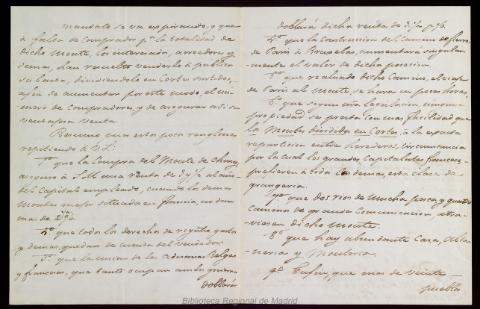 mandato se va espirando, y que
a falta de comprador pr. la totalidad de
dicho Monte, los interesados, acreedores y
demas, han resuelto venderlo à publica
subasta, dividiendolo en Cortes surtidos,
afin de aumentar por este medio el nu-
mero de Compradores, y de asegurar así su
ventajosa venta.
Resumo en estos pocos renglones
repitiendo à V. S.:
1º que la compra del Monte de
à S. M. una renta de 5 y ½ al año
del Capital empleado, cuando los demas
Montes mejor situados en francia, no dan
mas de 2 ½.
2º que todos los derechos de registro, gastos
y demas, quedan de cuenta del Vendedor.
3º que la union de las Aduanas Belgas
y francesas, que tanto ocupan ambos gobiernos
doblará
doblará dicha renta de 5 ½ p%.
4º que la construccion del Camino de fierro
de Paris à Bruselas, aumentará singular-
mente el valor de dicha posesion.
5º que realizado dicho Camino, el viage
de Paris al Monte, se hará en pocas horas.
6º que segun esta Legislacion, ninguna
propiedad se presta con mas facilidad que
los Montes divididos en Cortes, à la exacta
reparticion entre herederos, circunstancia
por la cual los grandes Capitalistas franceses
prefieren à todas las demas, esta clase de
grangeria.
7º que dos rios de mucha pesca, y quatro
Caminos de grande Comunicacion atra-
viesan dicho Monte.
8º que hay abundante Caza,
y Monteria.
9º Enfin, que mas de veinte
pueblos
Biblioteca Regional de Madrid